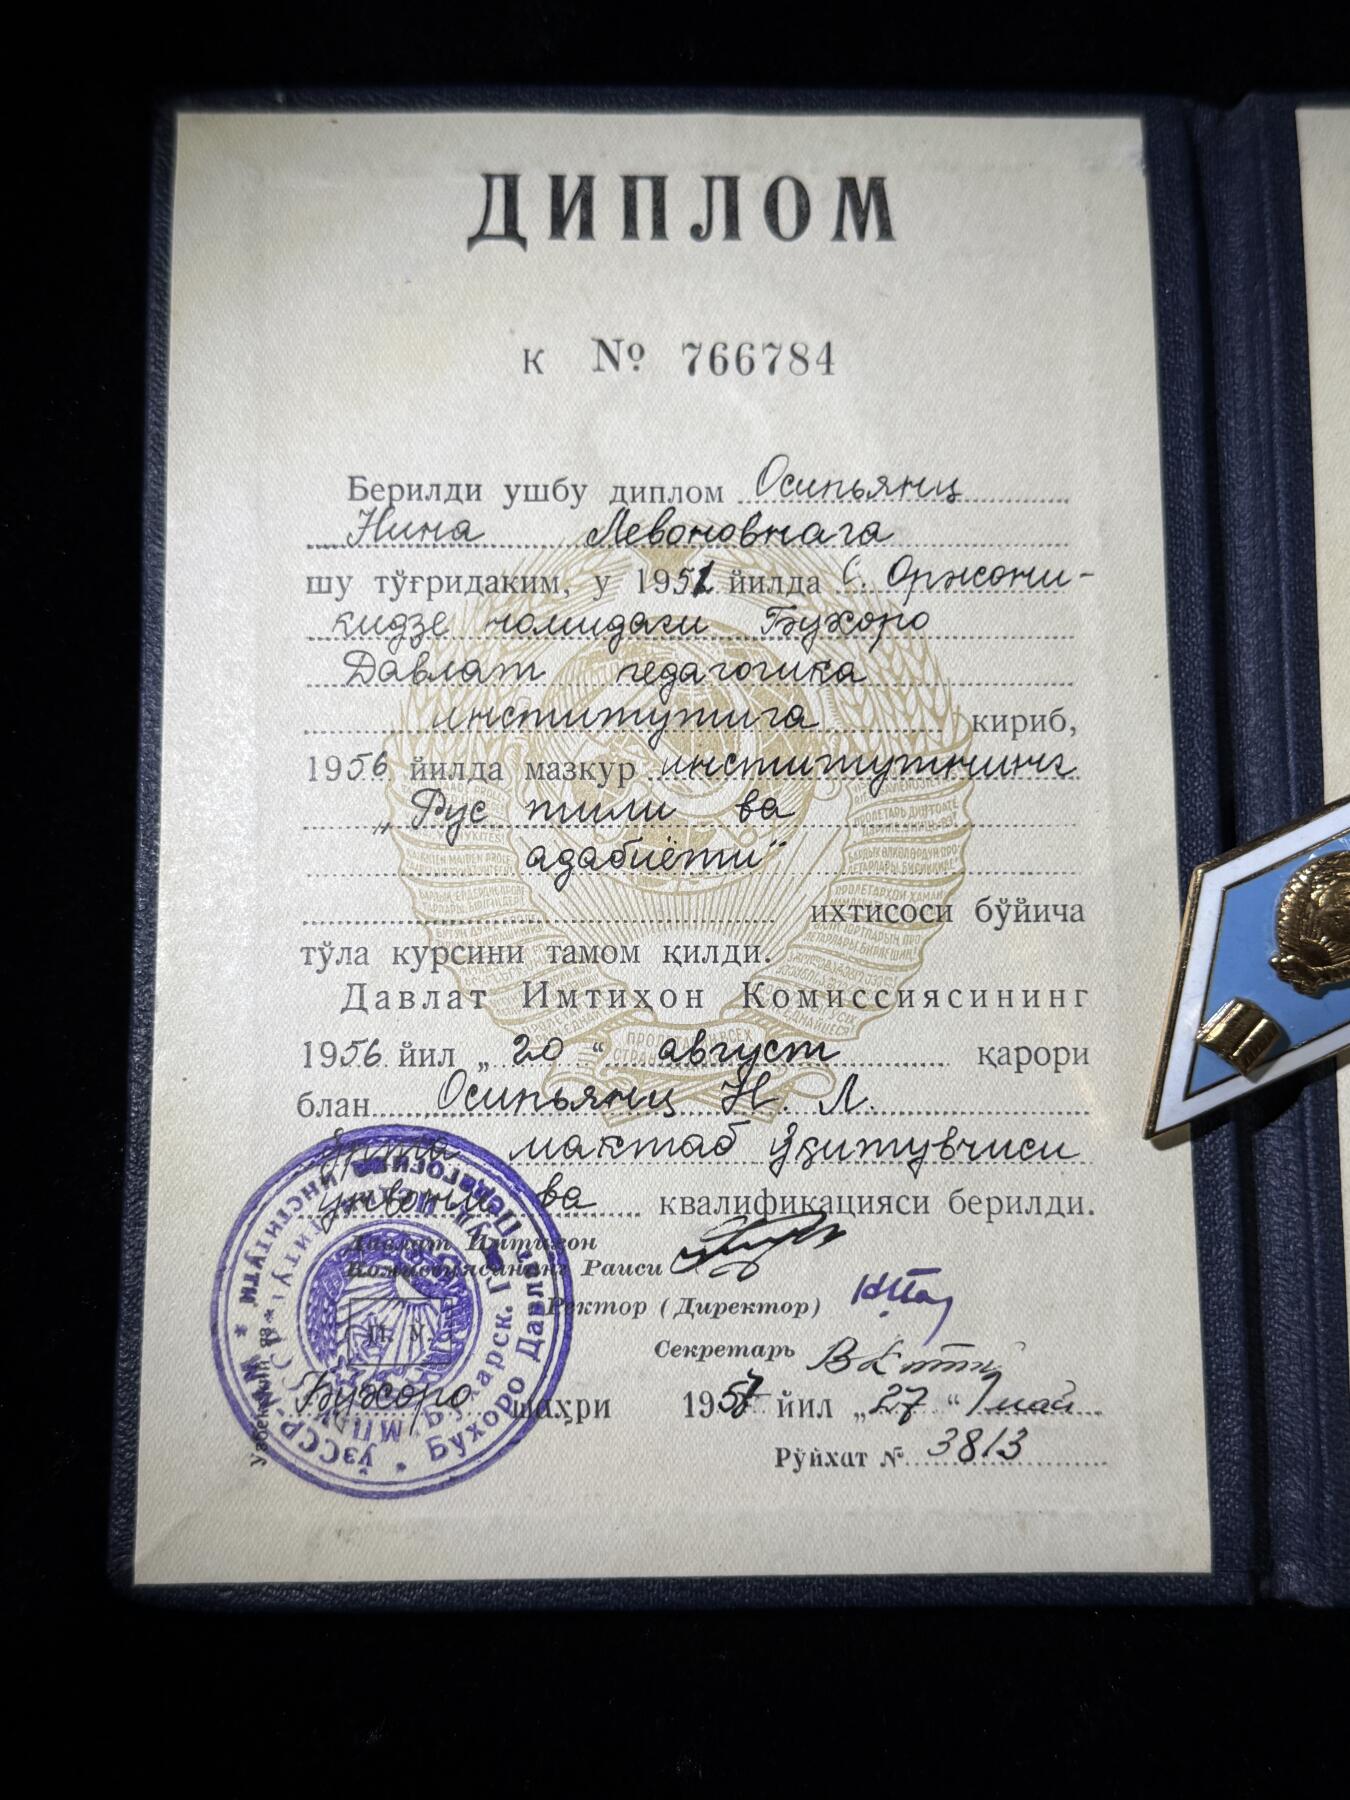 ДИПЛОМ
К № 766784
Берилди ушбу диплом Осипьянц
Нина Левоновнага
шу тўғридаким, у 1951 йилда С. Оржони-
кидзе номидаги Бухоро
Давлат педагогика
институтига кириб,
1956 йилда мазкур институтнинг
„Рус тили ва
адабиёти"
ихтисоси бўйича
тўла курсини тамом қилди.
Давлат Имтиҳон Комиссиясининг
1956 йил „20“ август қарори
блан Осипьянц Н. Л.
ўрта мактаб ўқитувчиси
унвони ва квалификацияси берилди.
Давлат Имтиҳон
Комиссиясининг Раиси
Ректор (Директор)
Секретарь
М. Ў.
Бухоро шаҳри 1957 йил „27“ май
Рўйхат № 3813